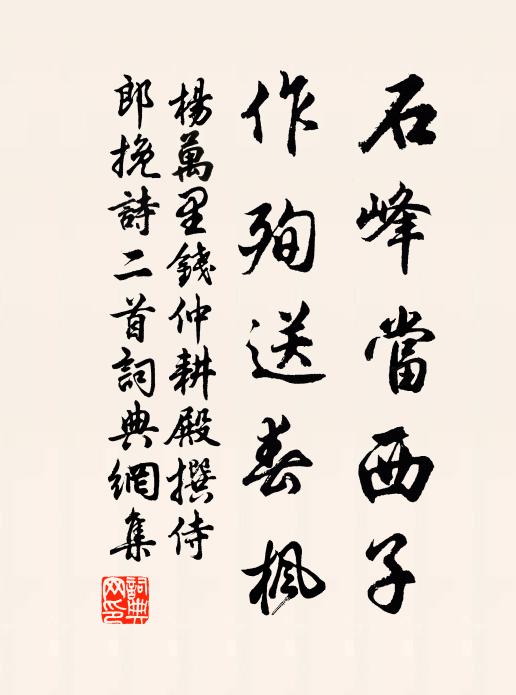 石峰當西子
作殉送春楓
楊萬里錢仲耕殿撰侍
郎挽詩二首詞典網集
詞典網印